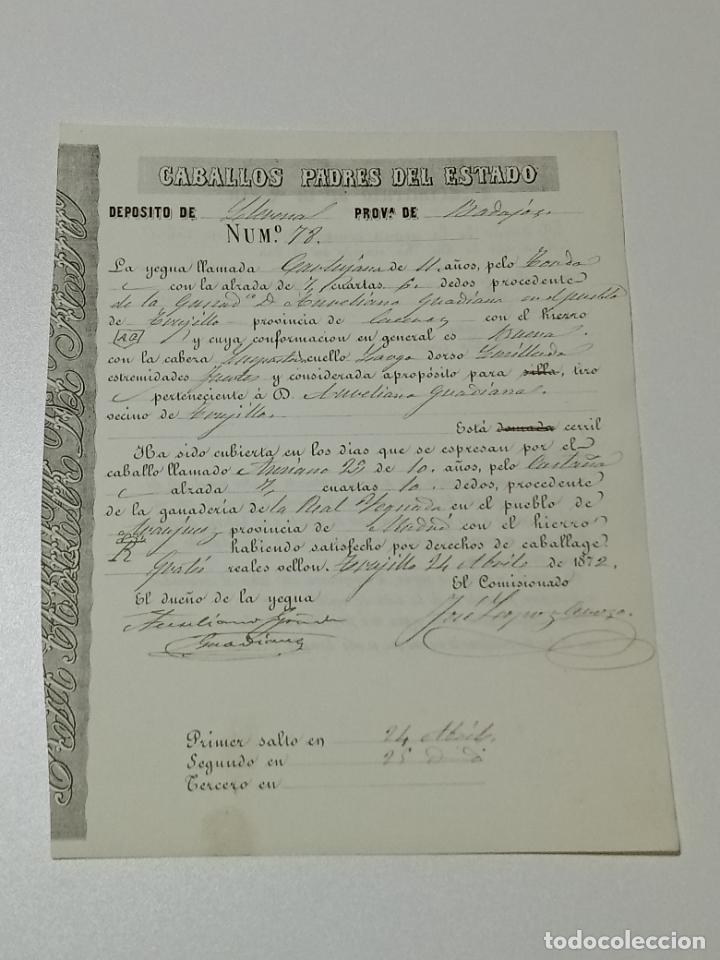 CABALLOS PADRES DEL ESTADO
DEPOSITO DE Llerena PROV.ª DE Badajoz
NUM.º 78.
La yegua llamada de 11 años, pelo Tordo
con la alzada de 7 cuartas 6 dedos procedente
de la Ganad.ª D. Aureliano Guadiana en el pueblo
de Trujillo provincia de Caceres con el hierro
y cuya conformacion en general es Buena
con la cabeza cuello Largo dorso Ensillado
estremidades Fuertes y considerada apropósito para silla, tiro
perteneciente á D. Aureliano Guadiana
vecino de Trujillo
Está domada cerril
Ha sido cubierta en los dias que se espresan por el
caballo llamado de 10 años, pelo Castaño
alzada 7 cuartas 10 dedos, procedente
de la ganadería de la Real Yeguada en el pueblo de
Aranjuez provincia de Madrid con el hierro
habiendo satisfecho por derechos de caballage
Gratis reales vellon. Trujillo 24 Abril de 1872.
El Comisionado
El dueño de la yegua
José
Aureliano
Guadiana
Primer salto en 24 Abril
Segundo en 25
Tercero en
todocoleccion
todocoleccion.net